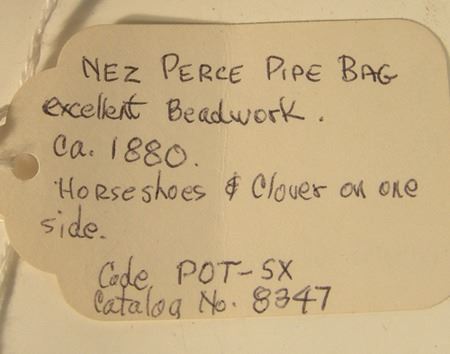 NEZ PERCE PIPE BAG
excellent Beadwork.
Ca. 1880.
Horseshoes & Clover on one
side.
Code POT-SX
Catalog No. 8347